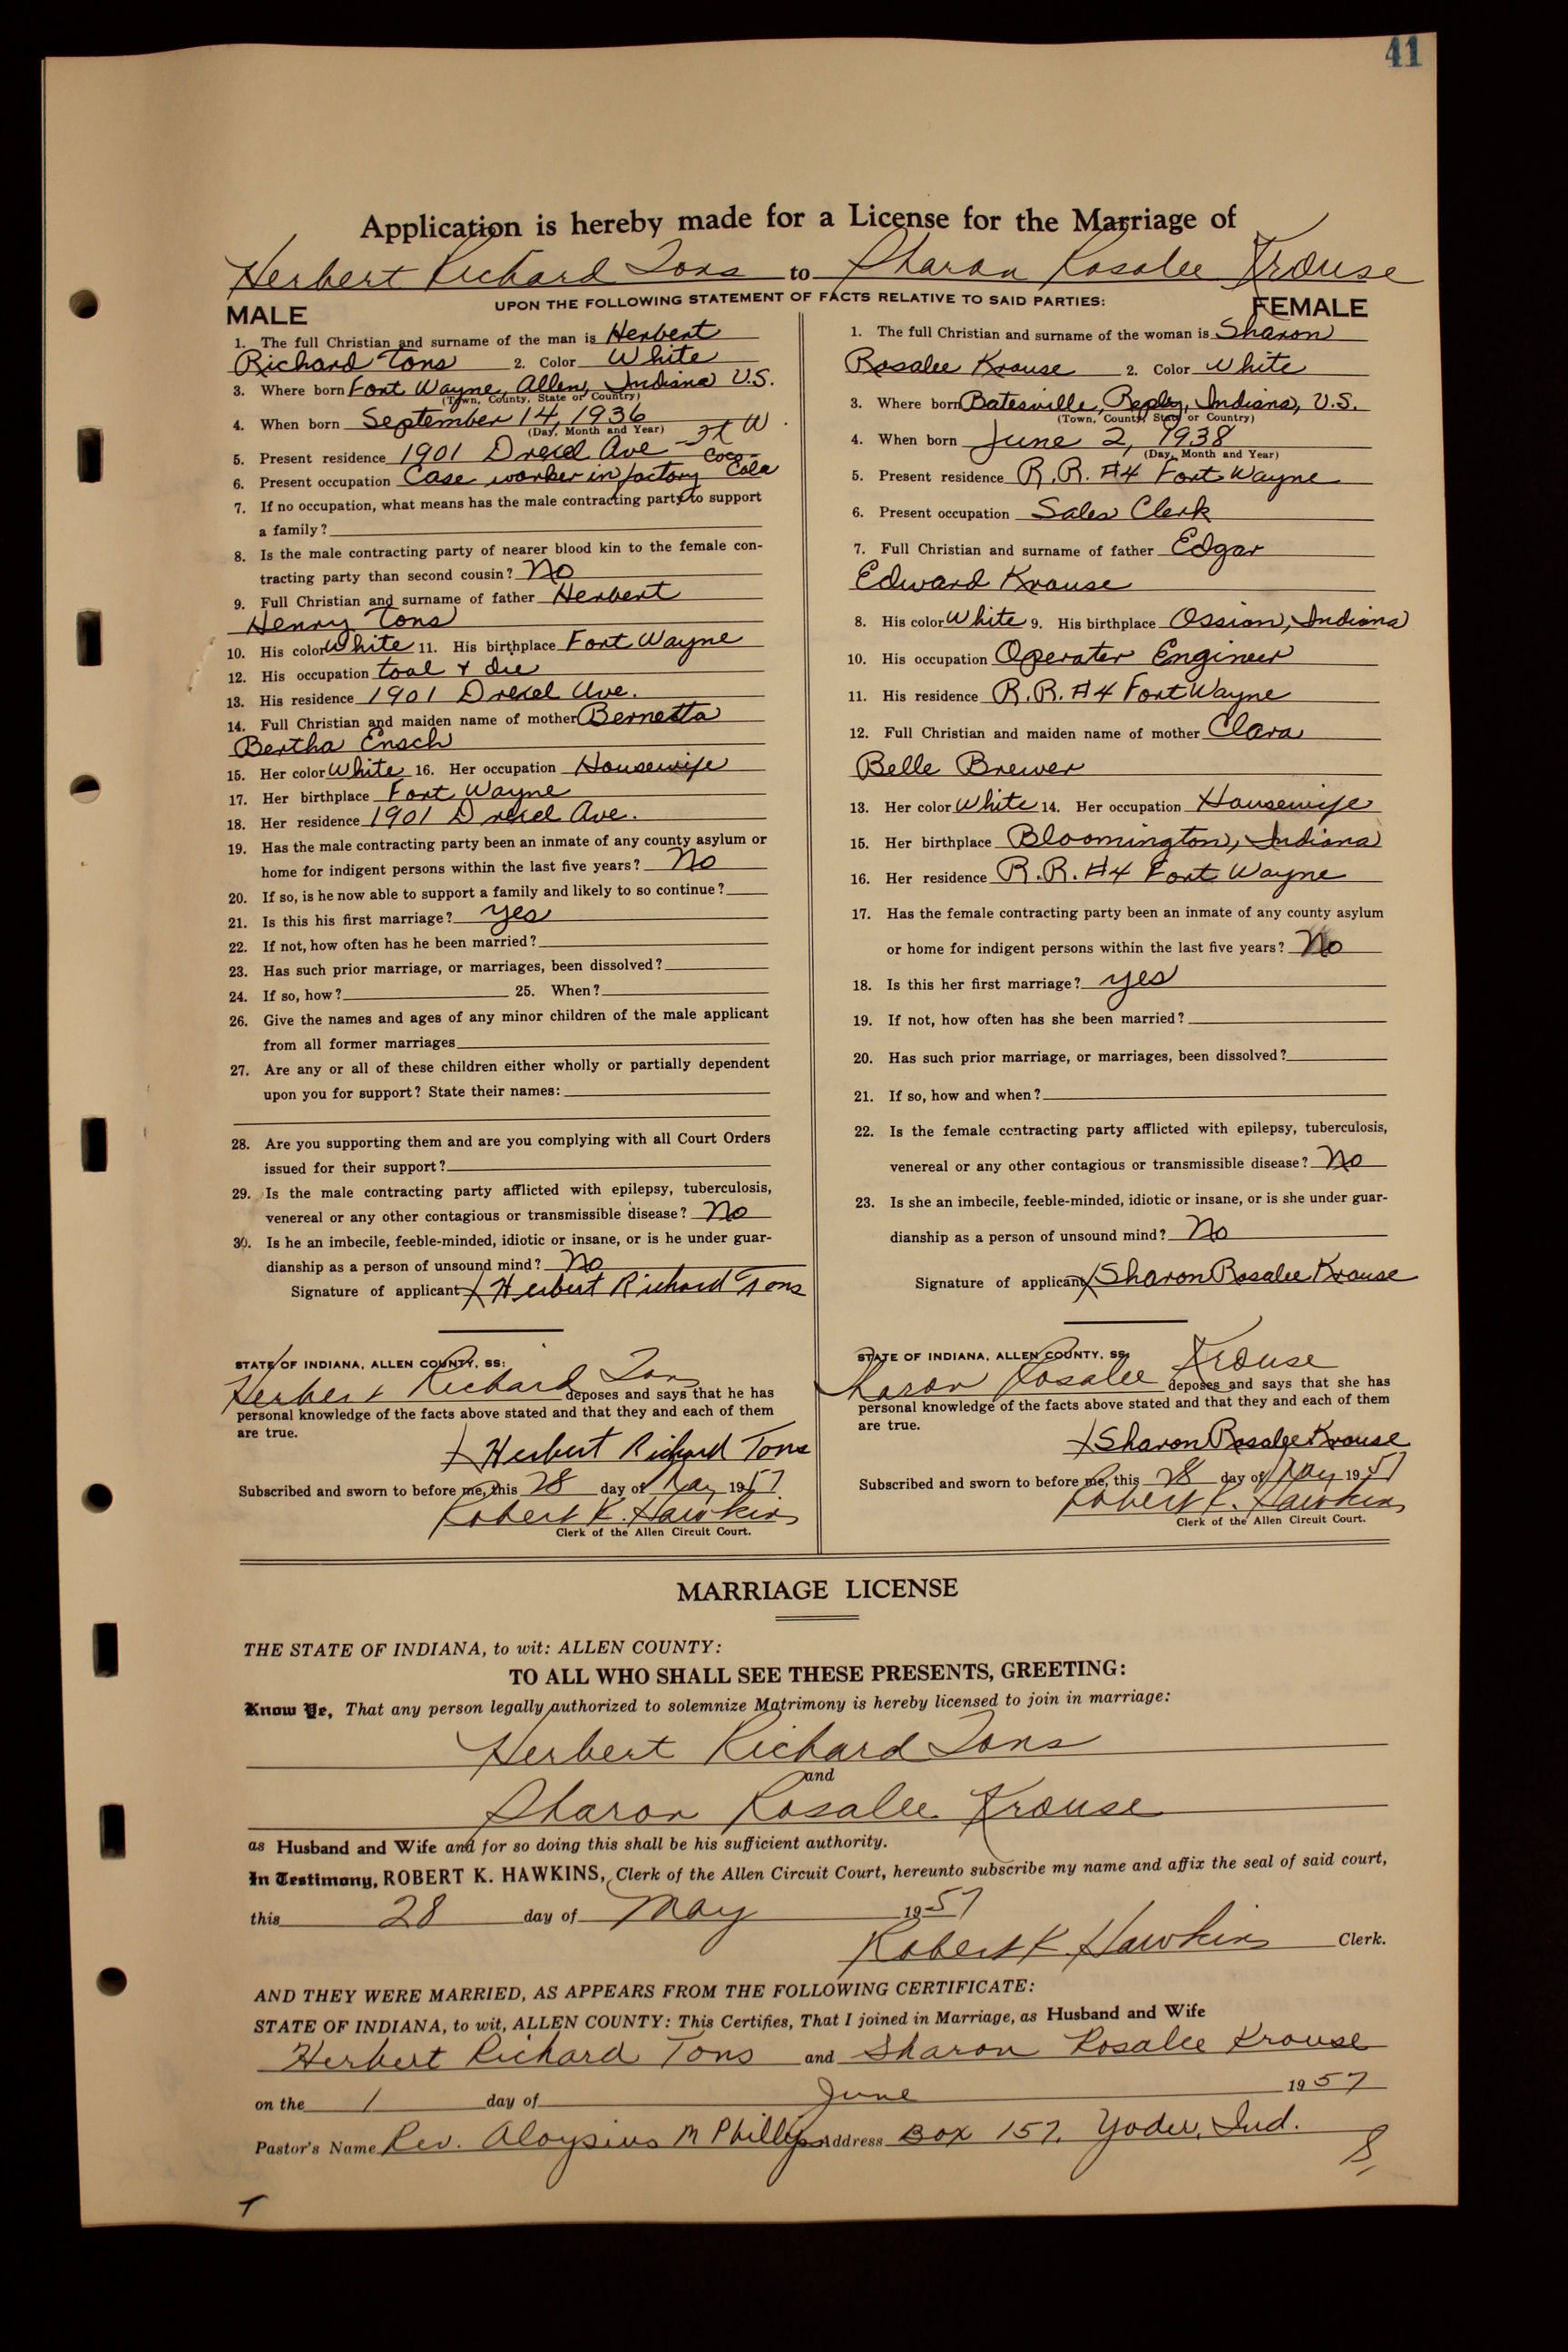 41
Application is hereby made for a License for the Marriage of
Herbert Richard Tons to Sharon Rosalee Krouse
UPON THE FOLLOWING STATEMENT OF FACTS RELATIVE TO SAID PARTIES:
MALE
1. The full Christian and surname of the man is Herbert
Richard Tons 2. Color White
3. Where born Fort Wayne, Allen, Indiana U.S.
(Town, County, State or Country)
4. When born September 14, 1936
(Day, Month and Year)
5. Present residence 1901 Drexel Ave Ft W
6. Present occupation Case worker in factory Coco-Cola
7. If no occupation, what means has the male contracting party to support
a family?
8. Is the male contracting party of nearer blood kin to the female con-
tracting party than second cousin? No
9. Full Christian and surname of father Herbert
Henry Tons
10. His color White 11. His birthplace Fort Wayne
12. His occupation tool & die
13. His residence 1901 Drexel Ave.
14. Full Christian and maiden name of mother Bernetta
Bertha Ensch
15. Her color White 16. Her occupation Housewife
17. Her birthplace Fort Wayne
18. Her residence 1901 Drexel Ave.
19. Has the male contracting party been an inmate of any county asylum or
home for indigent persons within the last five years? No
20. If so, is he now able to support a family and likely to so continue?
21. Is this his first marriage? yes
22. If not, how often has he been married?
23. Has such prior marriage, or marriages, been dissolved?
24. If so, how? 25. When?
26. Give the names and ages of any minor children of the male applicant
from all former marriages
27. Are any or all of these children either wholly or partially dependent
upon you for support? State their names:
28. Are you supporting them and are you complying with all Court Orders
issued for their support?
29. Is the male contracting party afflicted with epilepsy, tuberculosis,
venereal or any other contagious or transmissible disease? No
30. Is he an imbecile, feeble-minded, idiotic or insane, or is he under guar-
dianship as a person of unsound mind? No
Signature of applicant X Herbert Richard Tons
STATE OF INDIANA, ALLEN COUNTY, SS:
Herbert Richard Tons deposes and says that he has
personal knowledge of the facts above stated and that they and each of them
are true.
X Herbert Richard Tons
Subscribed and sworn to before me, this 28 day of May 1957
Robert K. Hawkins
Clerk of the Allen Circuit Court.
FEMALE
1. The full Christian and surname of the woman is Sharon
Rosalee Krouse 2. Color White
3. Where born Batesville, Repley, Indiana, U.S.
(Town, County, State or Country)
4. When born June 2, 1938
(Day, Month and Year)
5. Present residence R.R. #4 Fort Wayne
6. Present occupation Sales Clerk
7. Full Christian and surname of father Edgar
Edward Krouse
8. His color White 9. His birthplace Ossion, Indiana
10. His occupation Operater Engineer
11. His residence R.R. #4 Fort Wayne
12. Full Christian and maiden name of mother Clara
Belle Brewer
13. Her color White 14. Her occupation Housewife
15. Her birthplace Bloomington, Indiana
16. Her residence R.R. #4 Fort Wayne
17. Has the female contracting party been an inmate of any county asylum
or home for indigent persons within the last five years? No
18. Is this her first marriage? yes
19. If not, how often has she been married?
20. Has such prior marriage, or marriages, been dissolved?
21. If so, how and when?
22. Is the female contracting party afflicted with epilepsy, tuberculosis,
venereal or any other contagious or transmissible disease? No
23. Is she an imbecile, feeble-minded, idiotic or insane, or is she under guar-
dianship as a person of unsound mind? No
Signature of applicant X Sharon Rosalee Krouse
STATE OF INDIANA, ALLEN COUNTY, SS.
Sharon Rosalee Krouse deposes and says that she has
personal knowledge of the facts above stated and that they and each of them
are true.
X Sharon Rosalee Krouse
Subscribed and sworn to before me, this 28 day of May 1957
Robert K. Hawkins
Clerk of the Allen Circuit Court.
MARRIAGE LICENSE
THE STATE OF INDIANA, to wit: ALLEN COUNTY:
TO ALL WHO SHALL SEE THESE PRESENTS, GREETING:
Know Ye, That any person legally authorized to solemnize Matrimony is hereby licensed to join in marriage:
Herbert Richard Tons
and
Sharon Rosalee Krouse
as Husband and Wife and for so doing this shall be his sufficient authority.
In Testimony, ROBERT K. HAWKINS, Clerk of the Allen Circuit Court, hereunto subscribe my name and affix the seal of said court,
this 28 day of May 1957
Robert K. Hawkins Clerk.
AND THEY WERE MARRIED, AS APPEARS FROM THE FOLLOWING CERTIFICATE:
STATE OF INDIANA, to wit, ALLEN COUNTY: This Certifies, That I joined in Marriage, as Husband and Wife
Herbert Richard Tons and Sharon Rosalee Krouse
on the 1 day of June 1957
Pastor's Name Rev. Aloysius M Phillips Address Box 157, Yoder, Ind.
T